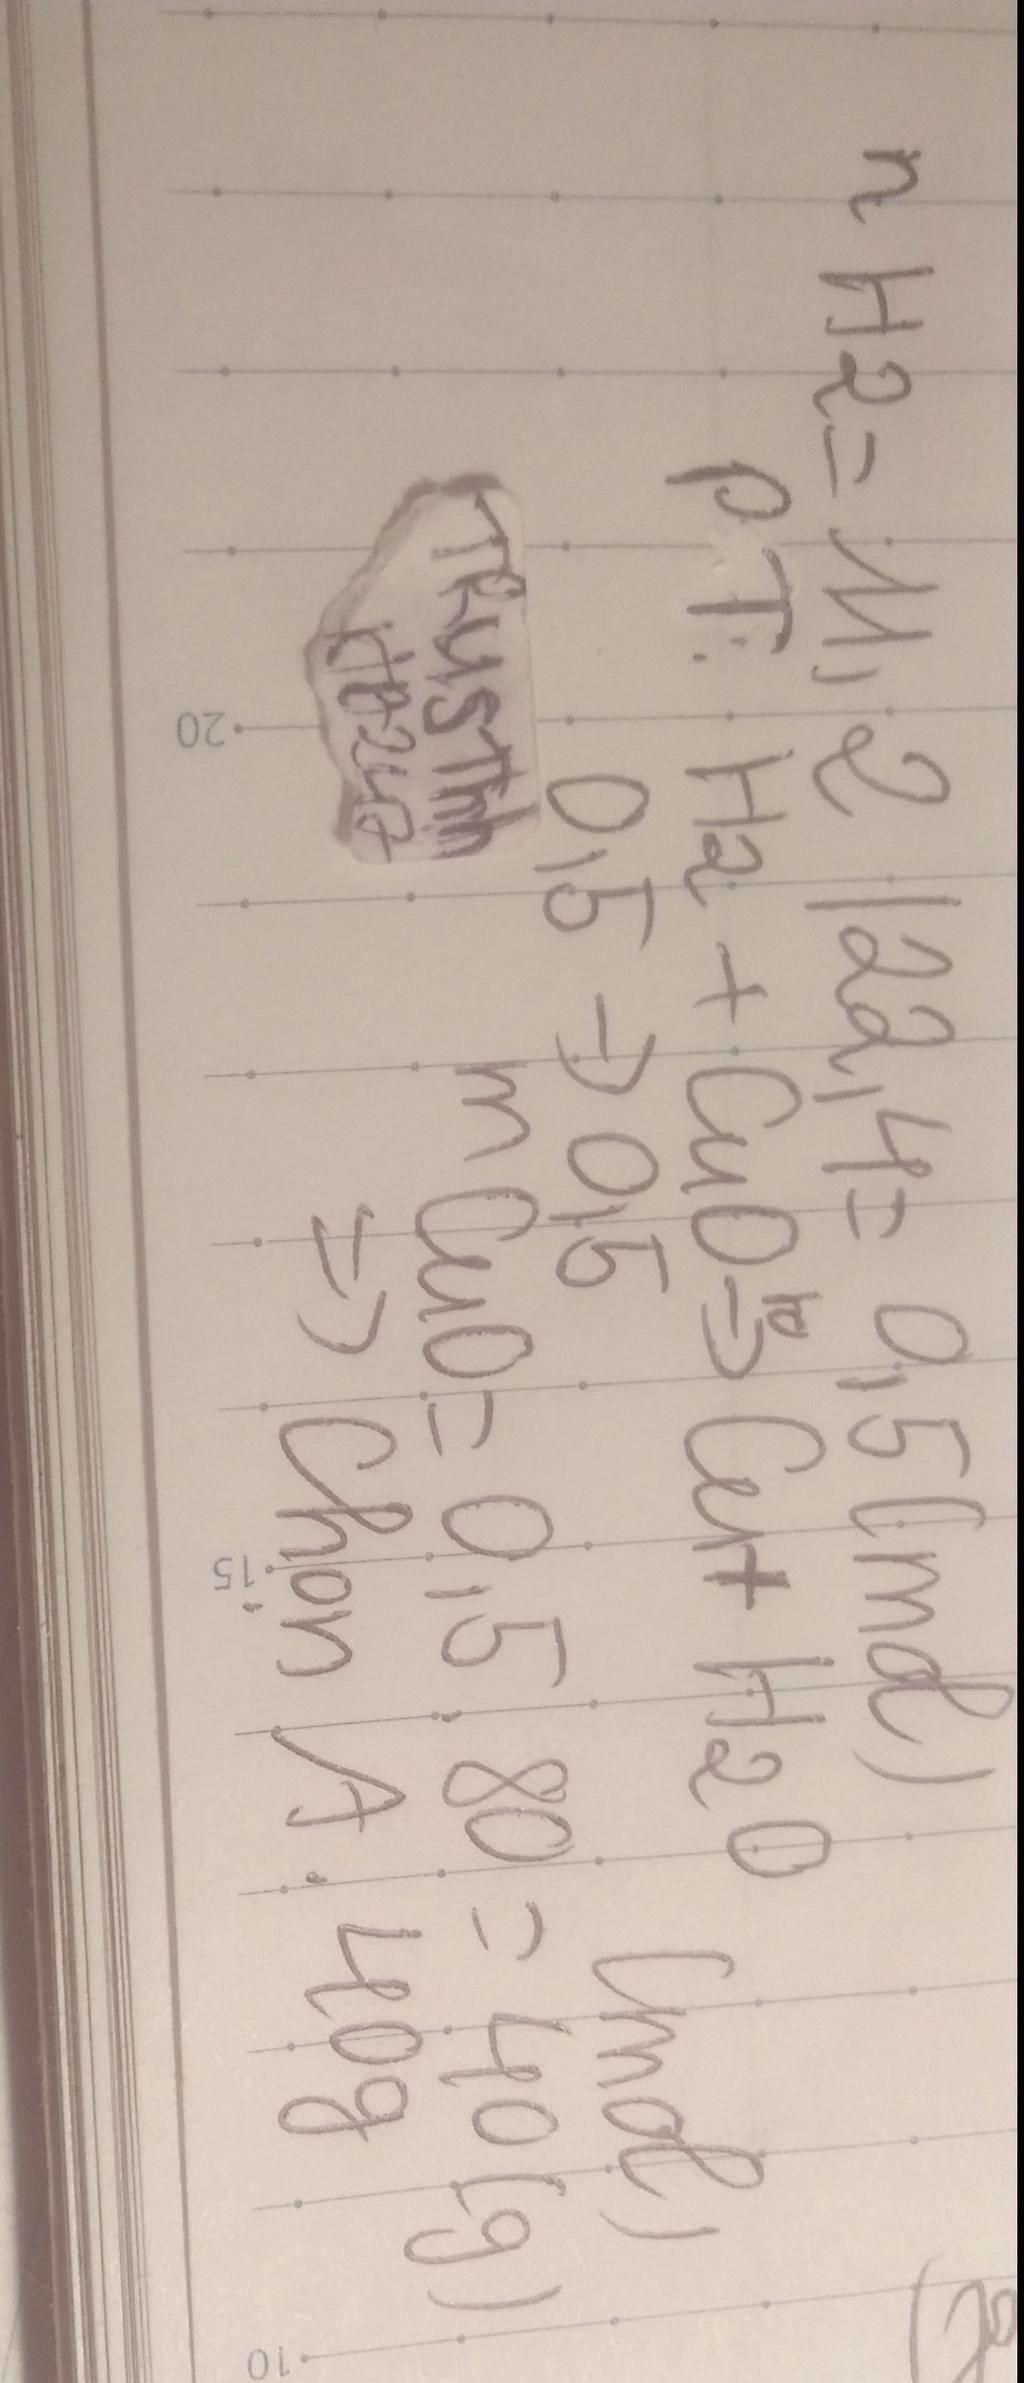 n H2 = 11,2 / 22,4 = 0,5 (mol)
PT: H2 + CuO → Cu + H2O
0,5 → 0,5 (mol)
m CuO = 0,5 . 80 = 40 (g)
⇒ Chọn A. 40g
20
15
10